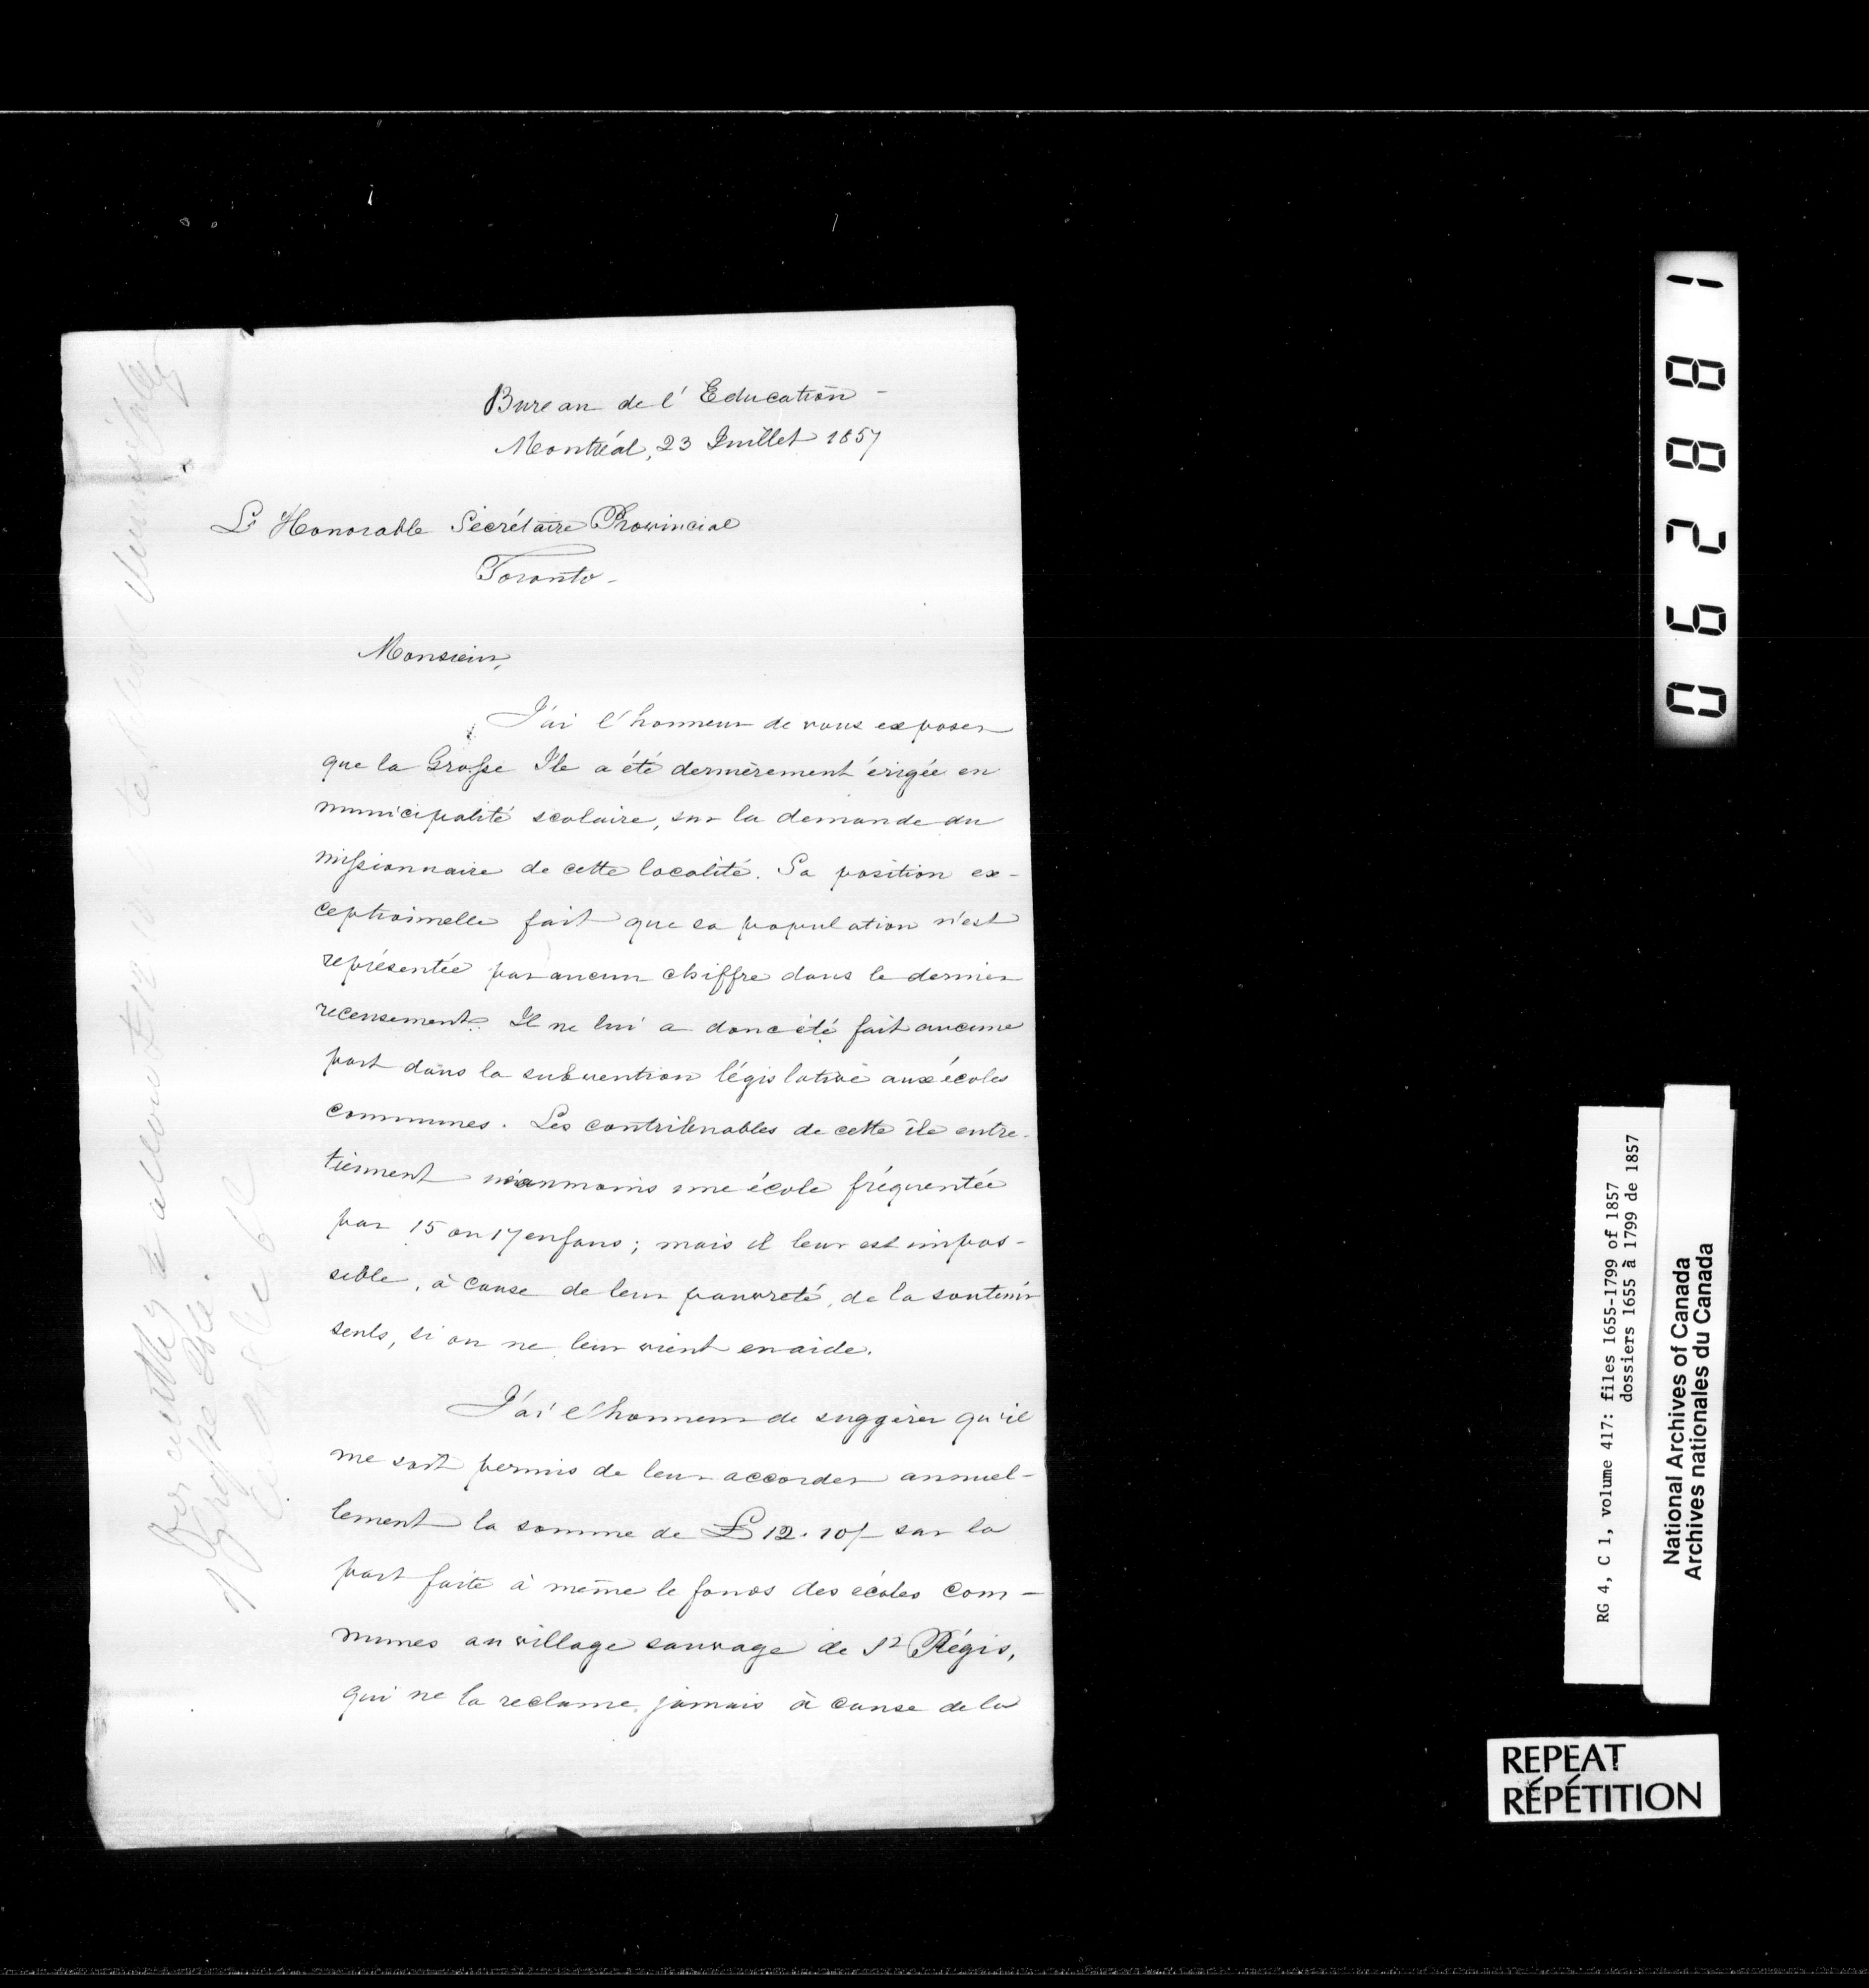 Bureau de l'Education -
Montréal, 23 Juillet 1857
L'Honorable Secrétaire Provincial
Toronto -
Monsieur,
J'ai l'honneur de vous exposer
que la Grosse Ile a été dernièrement érigée en
municipalité scolaire, sur la demande du
missionnaire de cette localité. Sa position ex-
ceptionnelle fait que sa population n'est
représentée par aucun chiffre dans le dernier
recensement. Il ne lui a donc été fait aucune
part dans la subvention législative aux écoles
communes. Les contribuables de cette île entre-
tiennent néanmoins une école fréquentée
par 15 ou 17 enfans; mais il leur est impos-
sible, à cause de leur pauvreté, de la soutenir
seuls, si on ne leur vient en aide.
J'ai l'honneur de suggérer qu'il
me soit permis de leur accorder annuel-
lement la somme de £12.10/- sur la
part faite à même le fonds des écoles com-
munes au village sauvage de St Régis,
qui ne la reclame jamais à cause de la
For authy to allow £12.10 to
Grosse Isle.
062881
RG 4, C 1, volume 417: files 1655-1799 of 1857
dossiers 1655 à 1799 de 1857
National Archives of Canada
Archives nationales du Canada
REPEAT
RÉPÉTITION